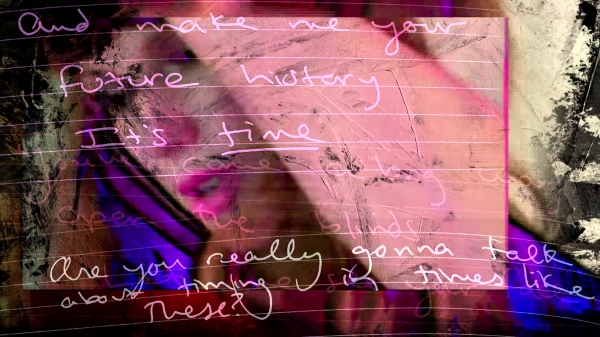 And make me your
future history
It's time
you came along and
open the blinds
Are you really gonna talk
about timing in times like
These?